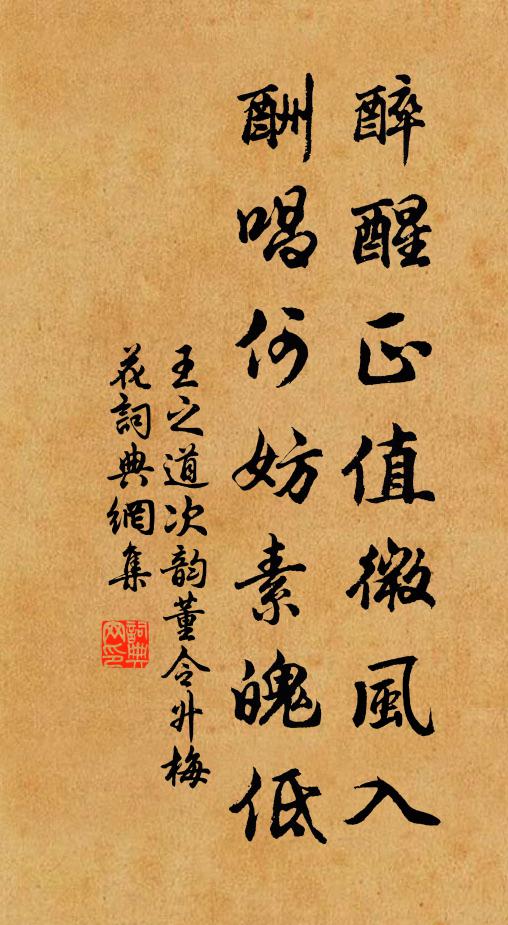 醉醒正值微風入
酬唱何妨素魄低
王之道次韵董令升梅
花詞典網集
詞典
网印